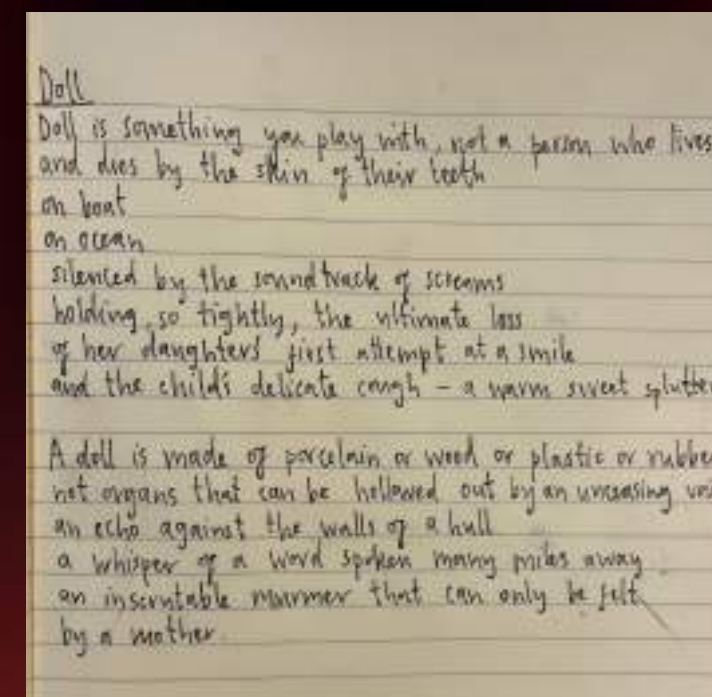 Doll
Doll is something you play with, not a person who lives
and dies by the skin of their teeth
on boat
on ocean
silenced by the soundtrack of screams
holding, so tightly, the ultimate loss
of her daughters' first attempt at a smile
and the child's delicate cough – a warm sweet splutter
A doll is made of porcelain or wood or plastic or rubber
not organs that can be hollowed out by an unceasing
an echo against the walls of a hull
a whisper of a word spoken many miles away
an inscrutable murmer that can only be felt
by a mother